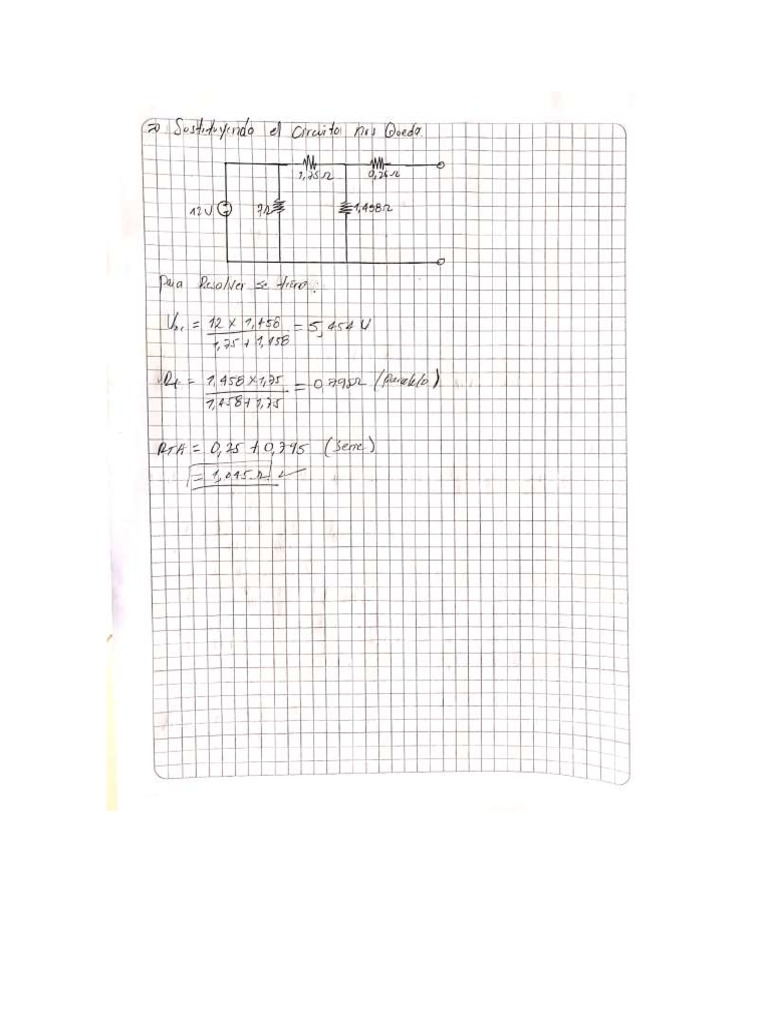 => Sustituyendo el circuito nos Queda.
1,75Ω 0,25Ω
12V 7Ω 1,458Ω
Para Resolver se tiene:
= 12 x 1,458 = 5,454 V
1,75 + 1,458
= 1,458 x 1,75 = 0,795Ω (paralelo)
1,458 + 1,75
RTH = 0,25 + 0,795 (serie)
= 1,045Ω